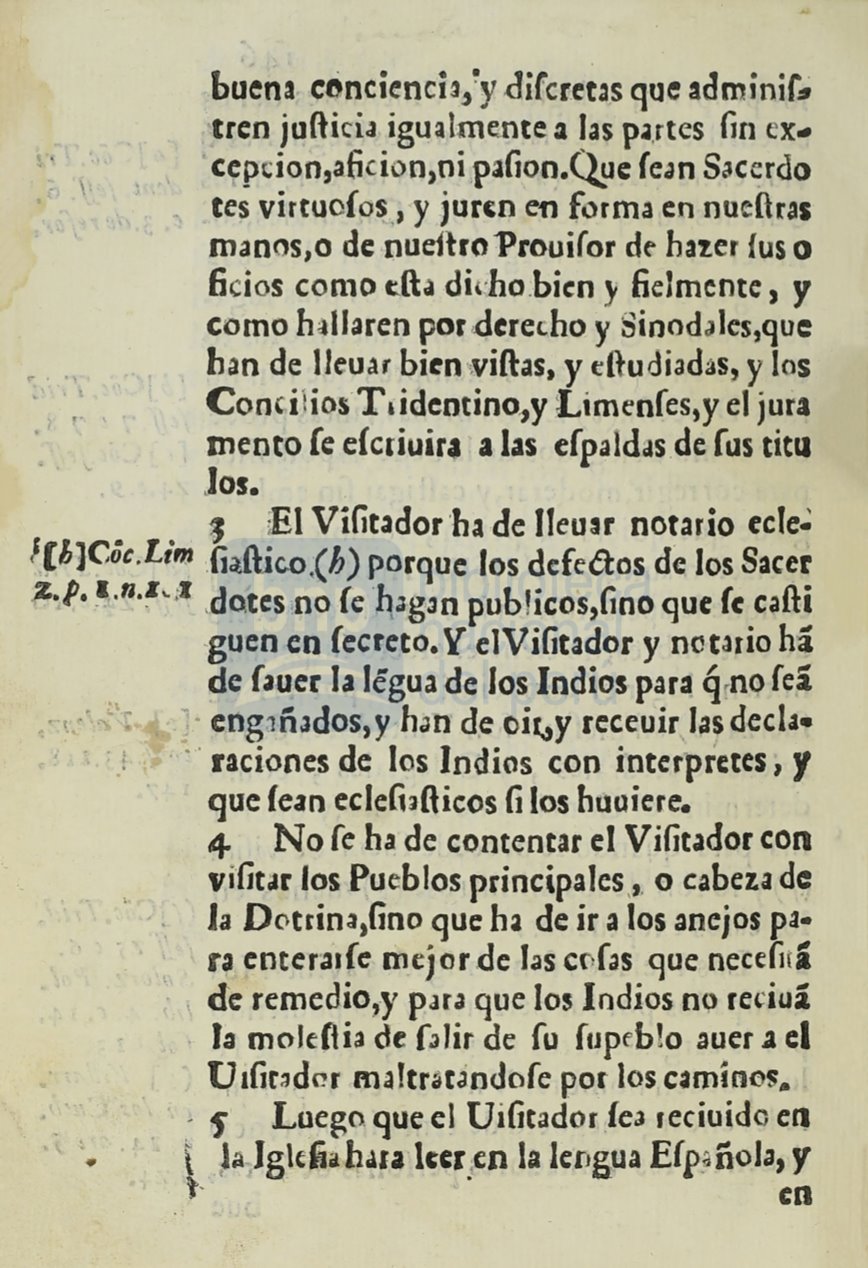 buena conciencia, y discretas que adminiſ-
tren juſticia igualmente a las partes ſin ex-
cepcion,aficion,ni paſion.Que ſean Sacerdo
tes virtuoſos, y juren en forma en nueſtras
manos,o de nueſtro Prouiſor de hazer ſus o
ficios como eſta dicho bien y fielmente, y
como hallaren por derecho y Sinodales,que
han de lleuar bien viſtas, y eſtudiadas, y los
Concilios Tridentino,y Limenſes,y el jura
mento ſe eſcriuira a las eſpaldas de ſus titu
los.
3 El Viſitador ha de lleuar notario ecle-
[h]Cõc.Lim
ſiaſtico.(h) porque los defectos de los Sacer
2.p. 1.n.1. 1
dotes no ſe hagan publicos,ſino que ſe caſti
guen en ſecreto.Y el Viſitador y notario hã
de ſauer la lẽgua de los Indios para q̃ no ſeã
engañados,y han de oir,y receuir las decla-
raciones de los Indios con interpretes, y
que ſean ecleſiaſticos ſi los huuiere.
4 No ſe ha de contentar el Viſitador con
viſitar los Pueblos principales, o cabeza de
la Dotrina,ſino que ha de ir a los anejos pa-
ra enterarſe mejor de las coſas que neceſitã
de remedio,y para que los Indios no reciuã
la moleſtia de ſalir de ſu ſupeblo auer a el
Uiſitador maltratandoſe por los caminos.
5 Luego que el Uiſitador ſea reciuido en
la Igleſia hara leer en la lengua Eſpañola, y
en